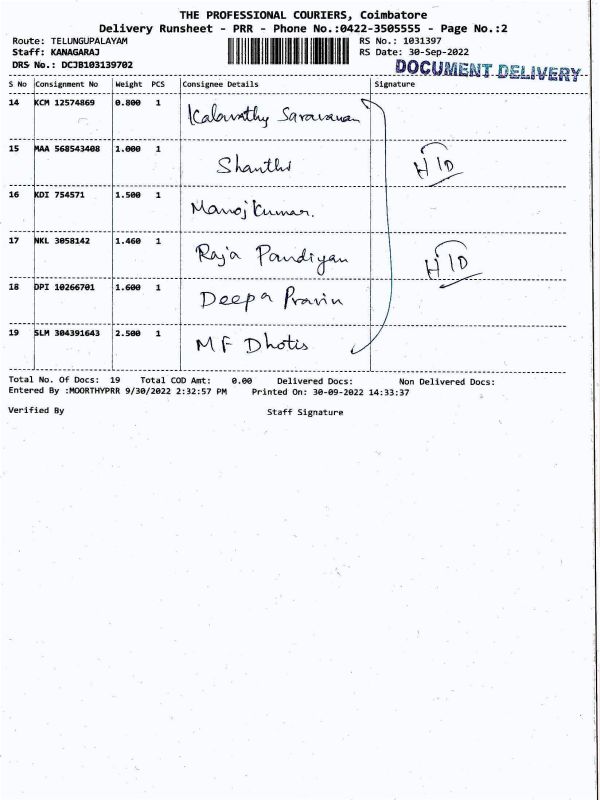 THE PROFESSIONAL COURIERS, Coimbatore
Delivery Runsheet - PRR - Phone No.:0422-3505555 - Page No.:2
Route: TELUNGUPALAYAM RS No.: 1031397
Staff: KANAGARAJ RS Date: 30-Sep-2022
DRS No.: DCJB103139702 DOCUMENT DELIVERY
S No Consignment No Weight PCS Consignee Details Signature
14 KCM 12574869 0.800 1 Kalavathy Saravanan
15 MAA 568543408 1.000 1 Shanthi H/D
16 KDI 754571 1.500 1 Manoj Kumar.
17 NKL 3058142 1.460 1 Raja Pandiyan H/D
18 DPI 10266701 1.600 1 Deepa Pravin
19 SLM 304391643 2.500 1 MF Dhotis
Total No. Of Docs: 19 Total COD Amt: 0.00 Delivered Docs: Non Delivered Docs:
Entered By :MOORTHYPRR 9/30/2022 2:32:57 PM Printed On: 30-09-2022 14:33:37
Verified By Staff Signature